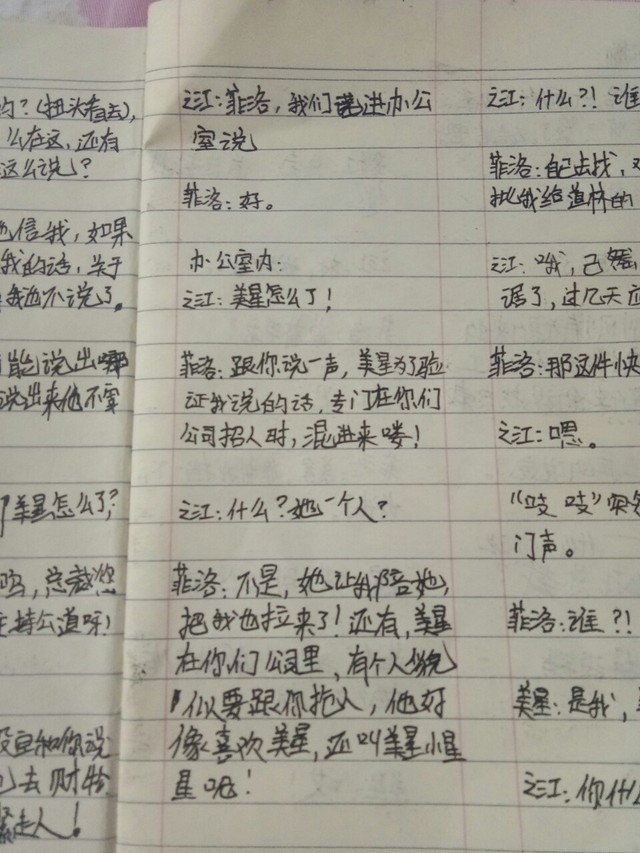 的？(扭头看去),
么在这，还有
这么说？
他信我，如果
我的话，关于
我也不说了。
能说出哪
说出来他不要
美星怎么了？
吗，总裁您
主持公道呀！
和你说
去财务
走人！
之江：菲洛，我们进办公
室说
菲洛：好。
办公室内：
之江：美星怎么了！
菲洛：跟你说一声，美星为了验
证我说的话，专门在你们
公司招人时，混进来喽！
之江：什么？她一个人？
菲洛：不是，她让我陪她，
把我也拉来了！还有，美星
在你们公司里，有个人貌
似要跟你抢人，他好
像喜欢美星，还叫美星小星
星呢！
之江：什么？！谁
菲洛：自己去找，
批我给道林的
之江：哦，已
谒了，过几天
菲洛：那这件快
之江：嗯。
“吱吱”突然
门声。
菲洛：谁？！
美星：是我，
之江：你什么